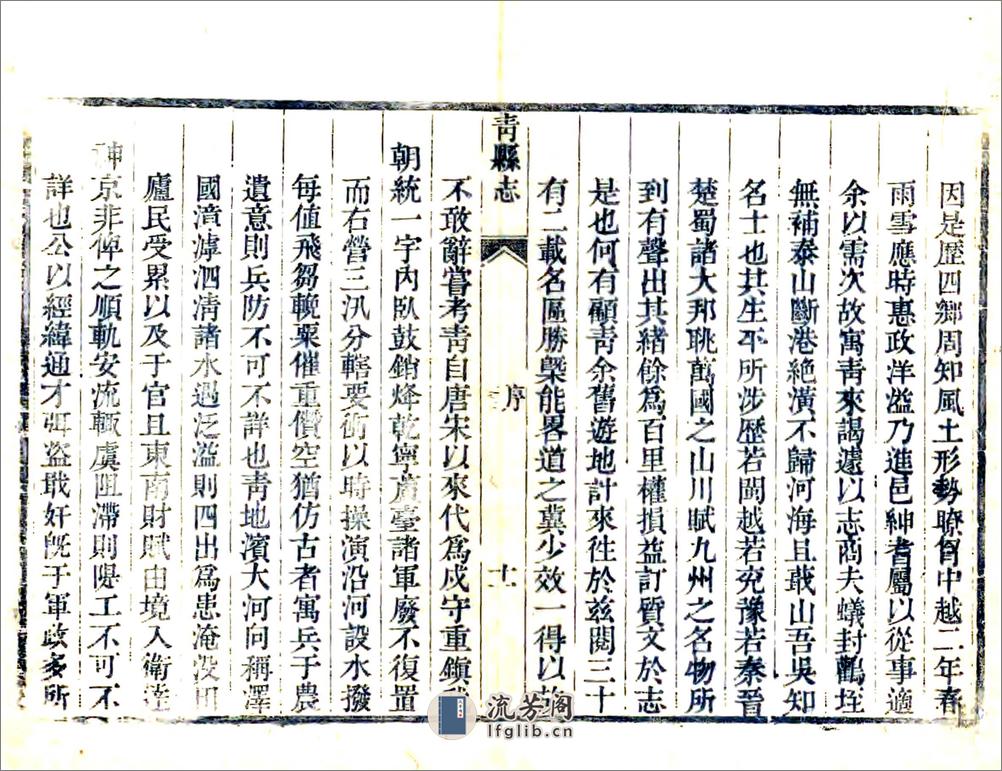 因是歷四鄉周知風土形勢瞭胷中越二年春
雨雪應時惠政洋溢乃進邑紳耆屬以從事適
余以需次故寓靑來謁遽以志商夫蟻封鸛垤
無補泰山斷港絕潢不歸河海且蕺山吾吳知
名士也其生平所涉歷若閩越若兖豫若秦晉
楚蜀諸大邦眺萬國之山川賦九州之名物所
到有聲出其緒餘爲百里權損益訂質文於志
是也何有顧靑余舊遊地計來徃於兹閱三十
有二載名區勝槩能畧道之冀少效一得以
靑縣志
序
十
不敢辭嘗考靑自唐宋以來代爲戍守重鎭
朝統一宇內臥鼓銷烽乾寧廣臺諸軍廢不復置
而右營三汛分轄要衝以時操演沿河設水撥
每値飛芻輓粟催重儹空猶仿古者寓兵于農
遺意則兵防不可不詳也靑地濱大河向稱澤
國漳滹泗淸諸水遇泛溢則四出爲患淹沒田
廬民受累以及于官且東南財賦由境入衛達
神京非俾之順軌安流輒虞阻滯則隄工不可不
詳也公以經緯通才弭盜戢奸旣于軍政多所
流芳阁
lfglib.cn